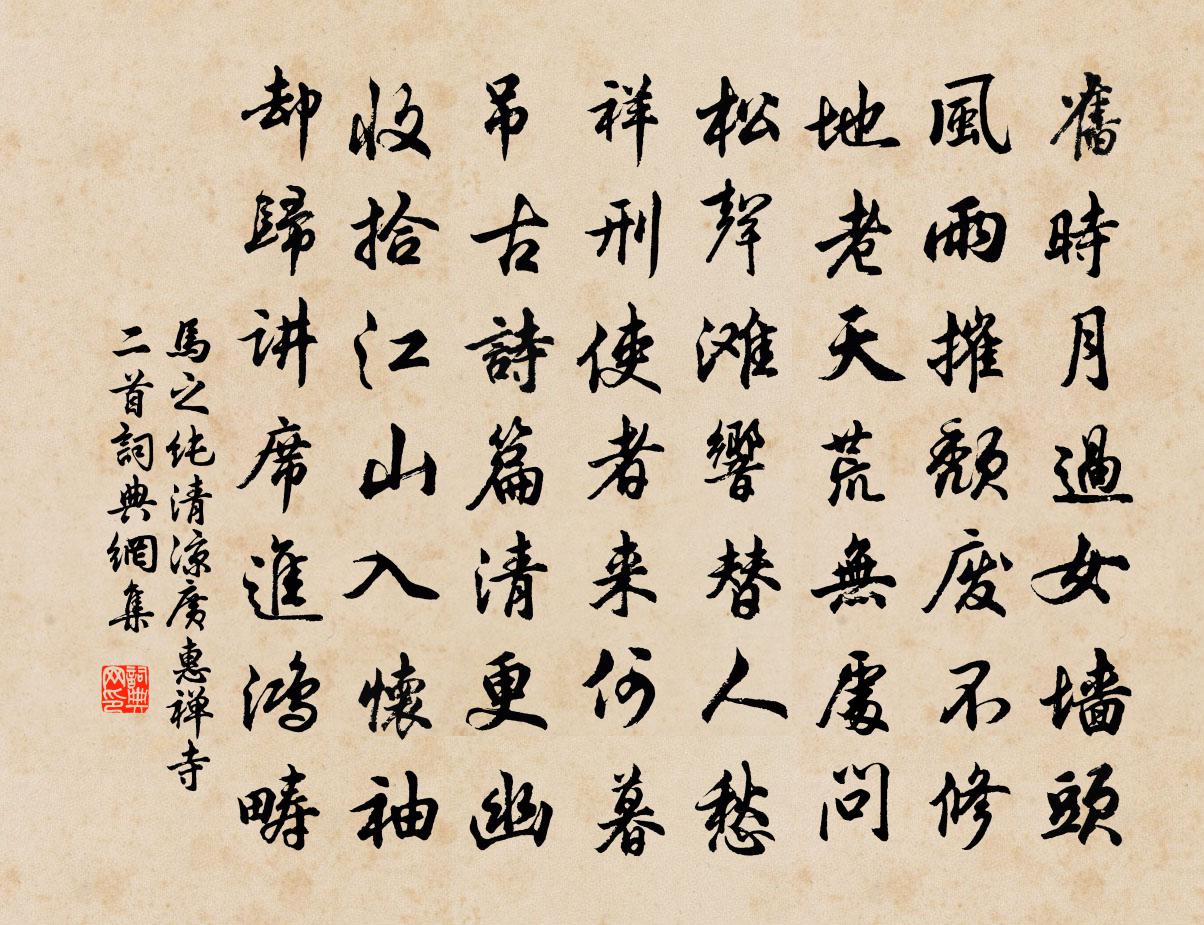 舊時月過女墻頭
風雨摧頹废不修
地老天荒無處問
松聲滩響替人愁
祥刑使者来何暮
吊古詩篇清更幽
收拾江山入懷袖
却歸讲席進鴻疇
馬之纯清凉廣惠禅寺
二首詞典網集
詞典网印